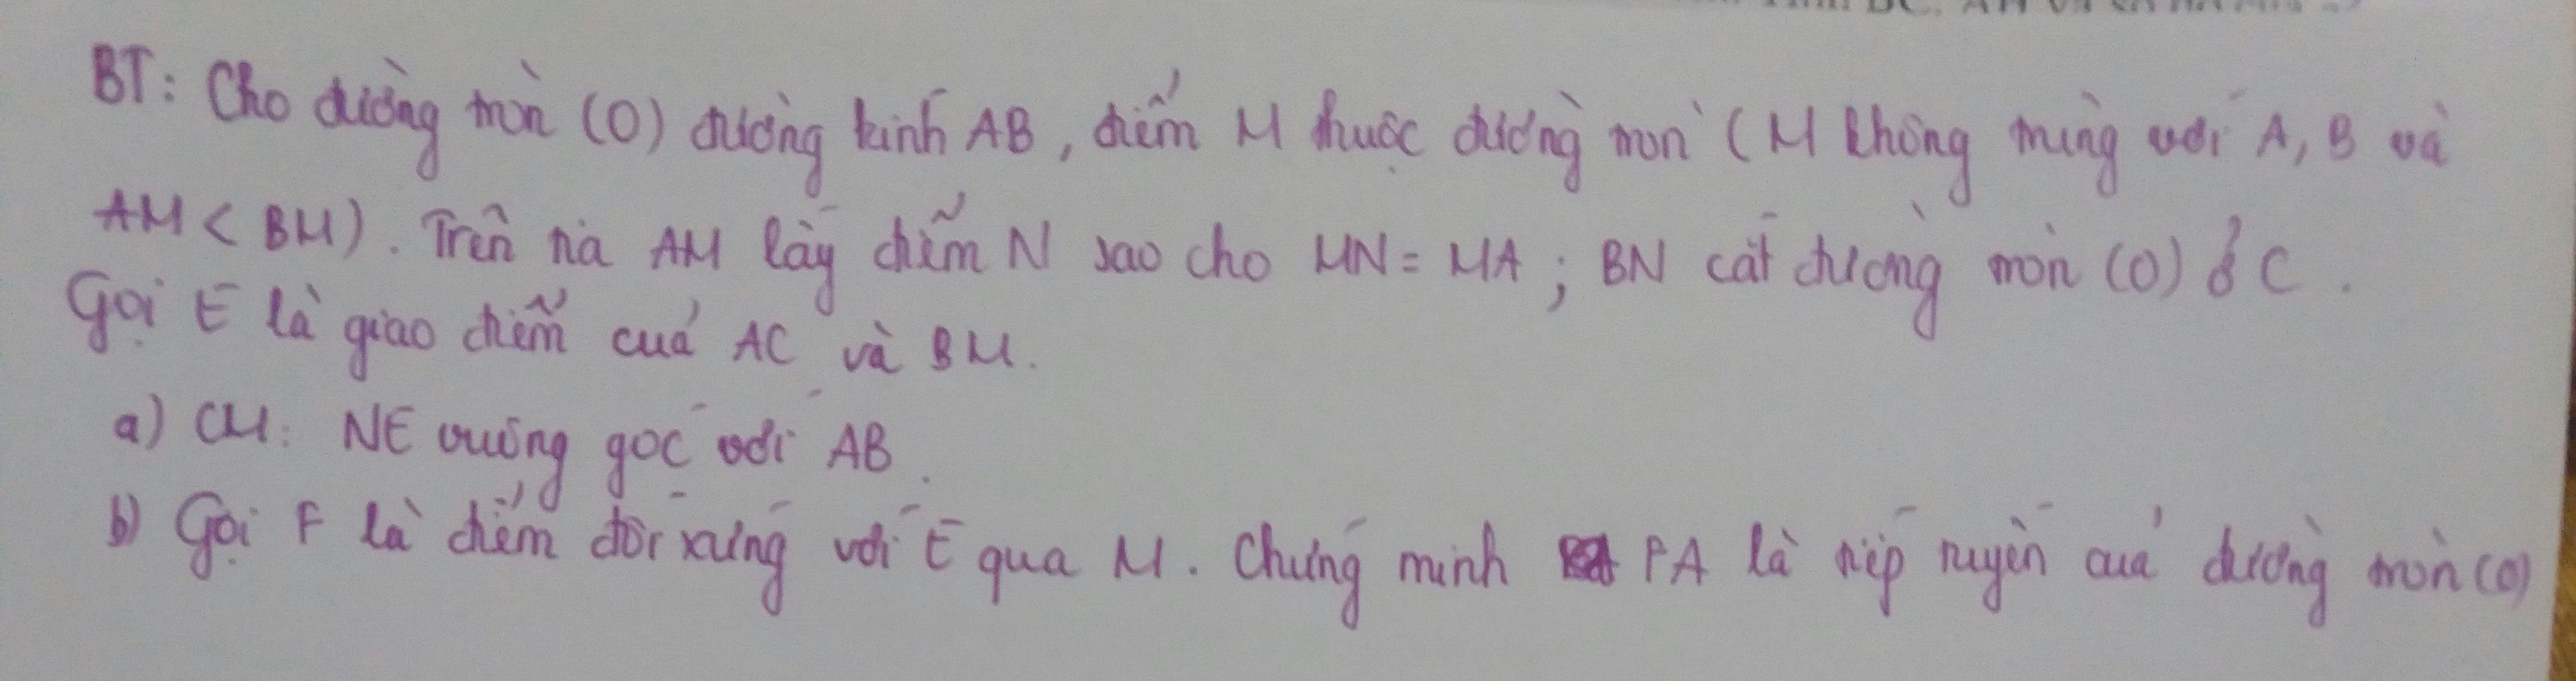 BT: Cho đường tròn (O) đường kính AB, điểm M thuộc đường tròn (M không trùng với A, B và
AM < BM). Trên tia AM lấy điểm N sao cho MN = MA; BN cắt đường tròn (O) ở C.
Gọi E là giao điểm của AC và BM.
a) CM: NE vuông góc với AB.
b) Gọi F là điểm đối xứng với E qua M. Chứng minh FA là tiếp tuyến của đường tròn (O)